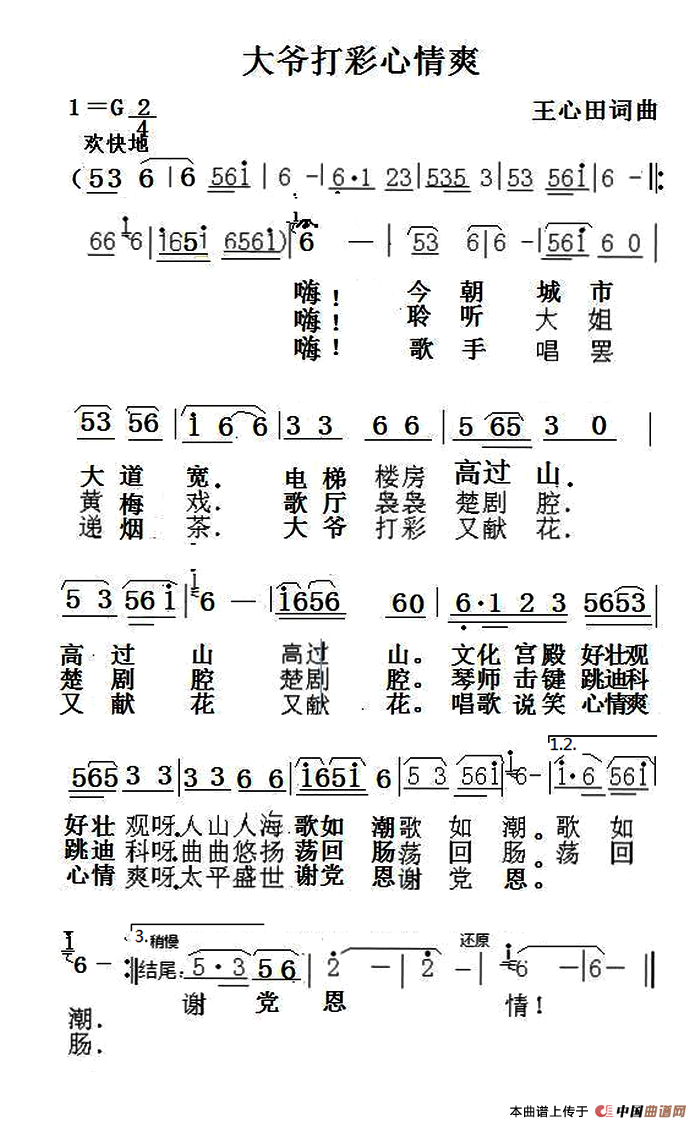 大爷打彩心情爽
1=G 2/4
王心田词曲
欢快地
(53 6 | 6 561 | 6 - | 6·1 23 | 535 3 | 53 561 | 6 - |:
66 1 6 | 1651 6561) | 1 6 — | 53 6 | 6 - | 561 6 0 |
嗨！ 今 朝 城 市
嗨！ 聆 听 大 姐
嗨！ 歌 手 唱 罢
53 56 | 1 6 6 | 3 3 6 6 | 5 65 3 0 |
大 道 宽. 电 梯 楼 房 高 过 山.
黄 梅 戏. 歌 厅 袅 袅 楚 剧 腔.
递 烟 茶. 大 爷 打 彩 又 献 花.
5 3 56 1 | 1 6 — | 1656 60 | 6·1 2 3 5653 |
高 过 山 高过 山。 文化 宫 殿 好壮观
楚 剧 腔 楚剧 腔。 琴师 击 键 跳迪科
又 献 花 又献 花。 唱歌 说 笑 心情爽
565 3 3 | 3 3 6 6 | 1651 6 | 5 3 561 | 1 6- | 1.2. 1·6 561 |
好壮 观呀.人山人海 歌如 潮歌 如 潮。歌 如
跳迪 科呀.曲曲悠扬 荡回 肠荡 回 肠。荡 回
心情 爽呀.太平盛世 谢党 恩谢 党 恩。
1 6 - :| 3. 稍慢
结尾: 5·3 5 6 | 2 - | 2 - | 还原 1 6 - | 6 - ‖
潮. 谢 党 恩 情！
肠.
本曲谱上传于 中国曲谱网